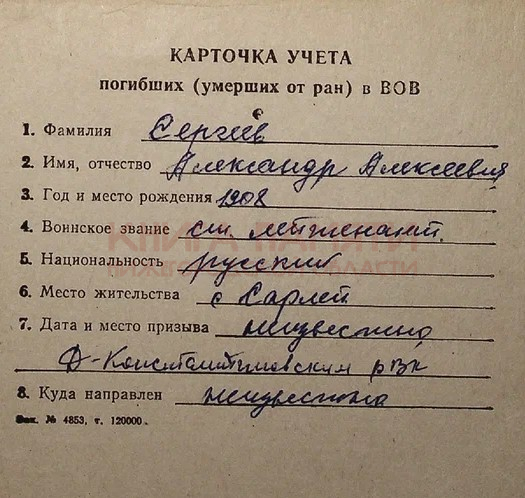 КАРТОЧКА УЧЕТА
погибших (умерших от ран) в ВОВ
1. Фамилия Сергеев
2. Имя, отчество Александр Алексеевич
3. Год и место рождения 1908
4. Воинское звание ст. лейтенант
КНИГА ПАМЯТИ
5. Национальность русский
НИЖЕГОРОДСКОЙ ОБЛАСТИ
6. Место жительства с Сарлей
7. Дата и место призыва неизвестно
Д-Константиновским рвк
8. Куда направлен неизвестно
Зак. № 4853, т. 120000.